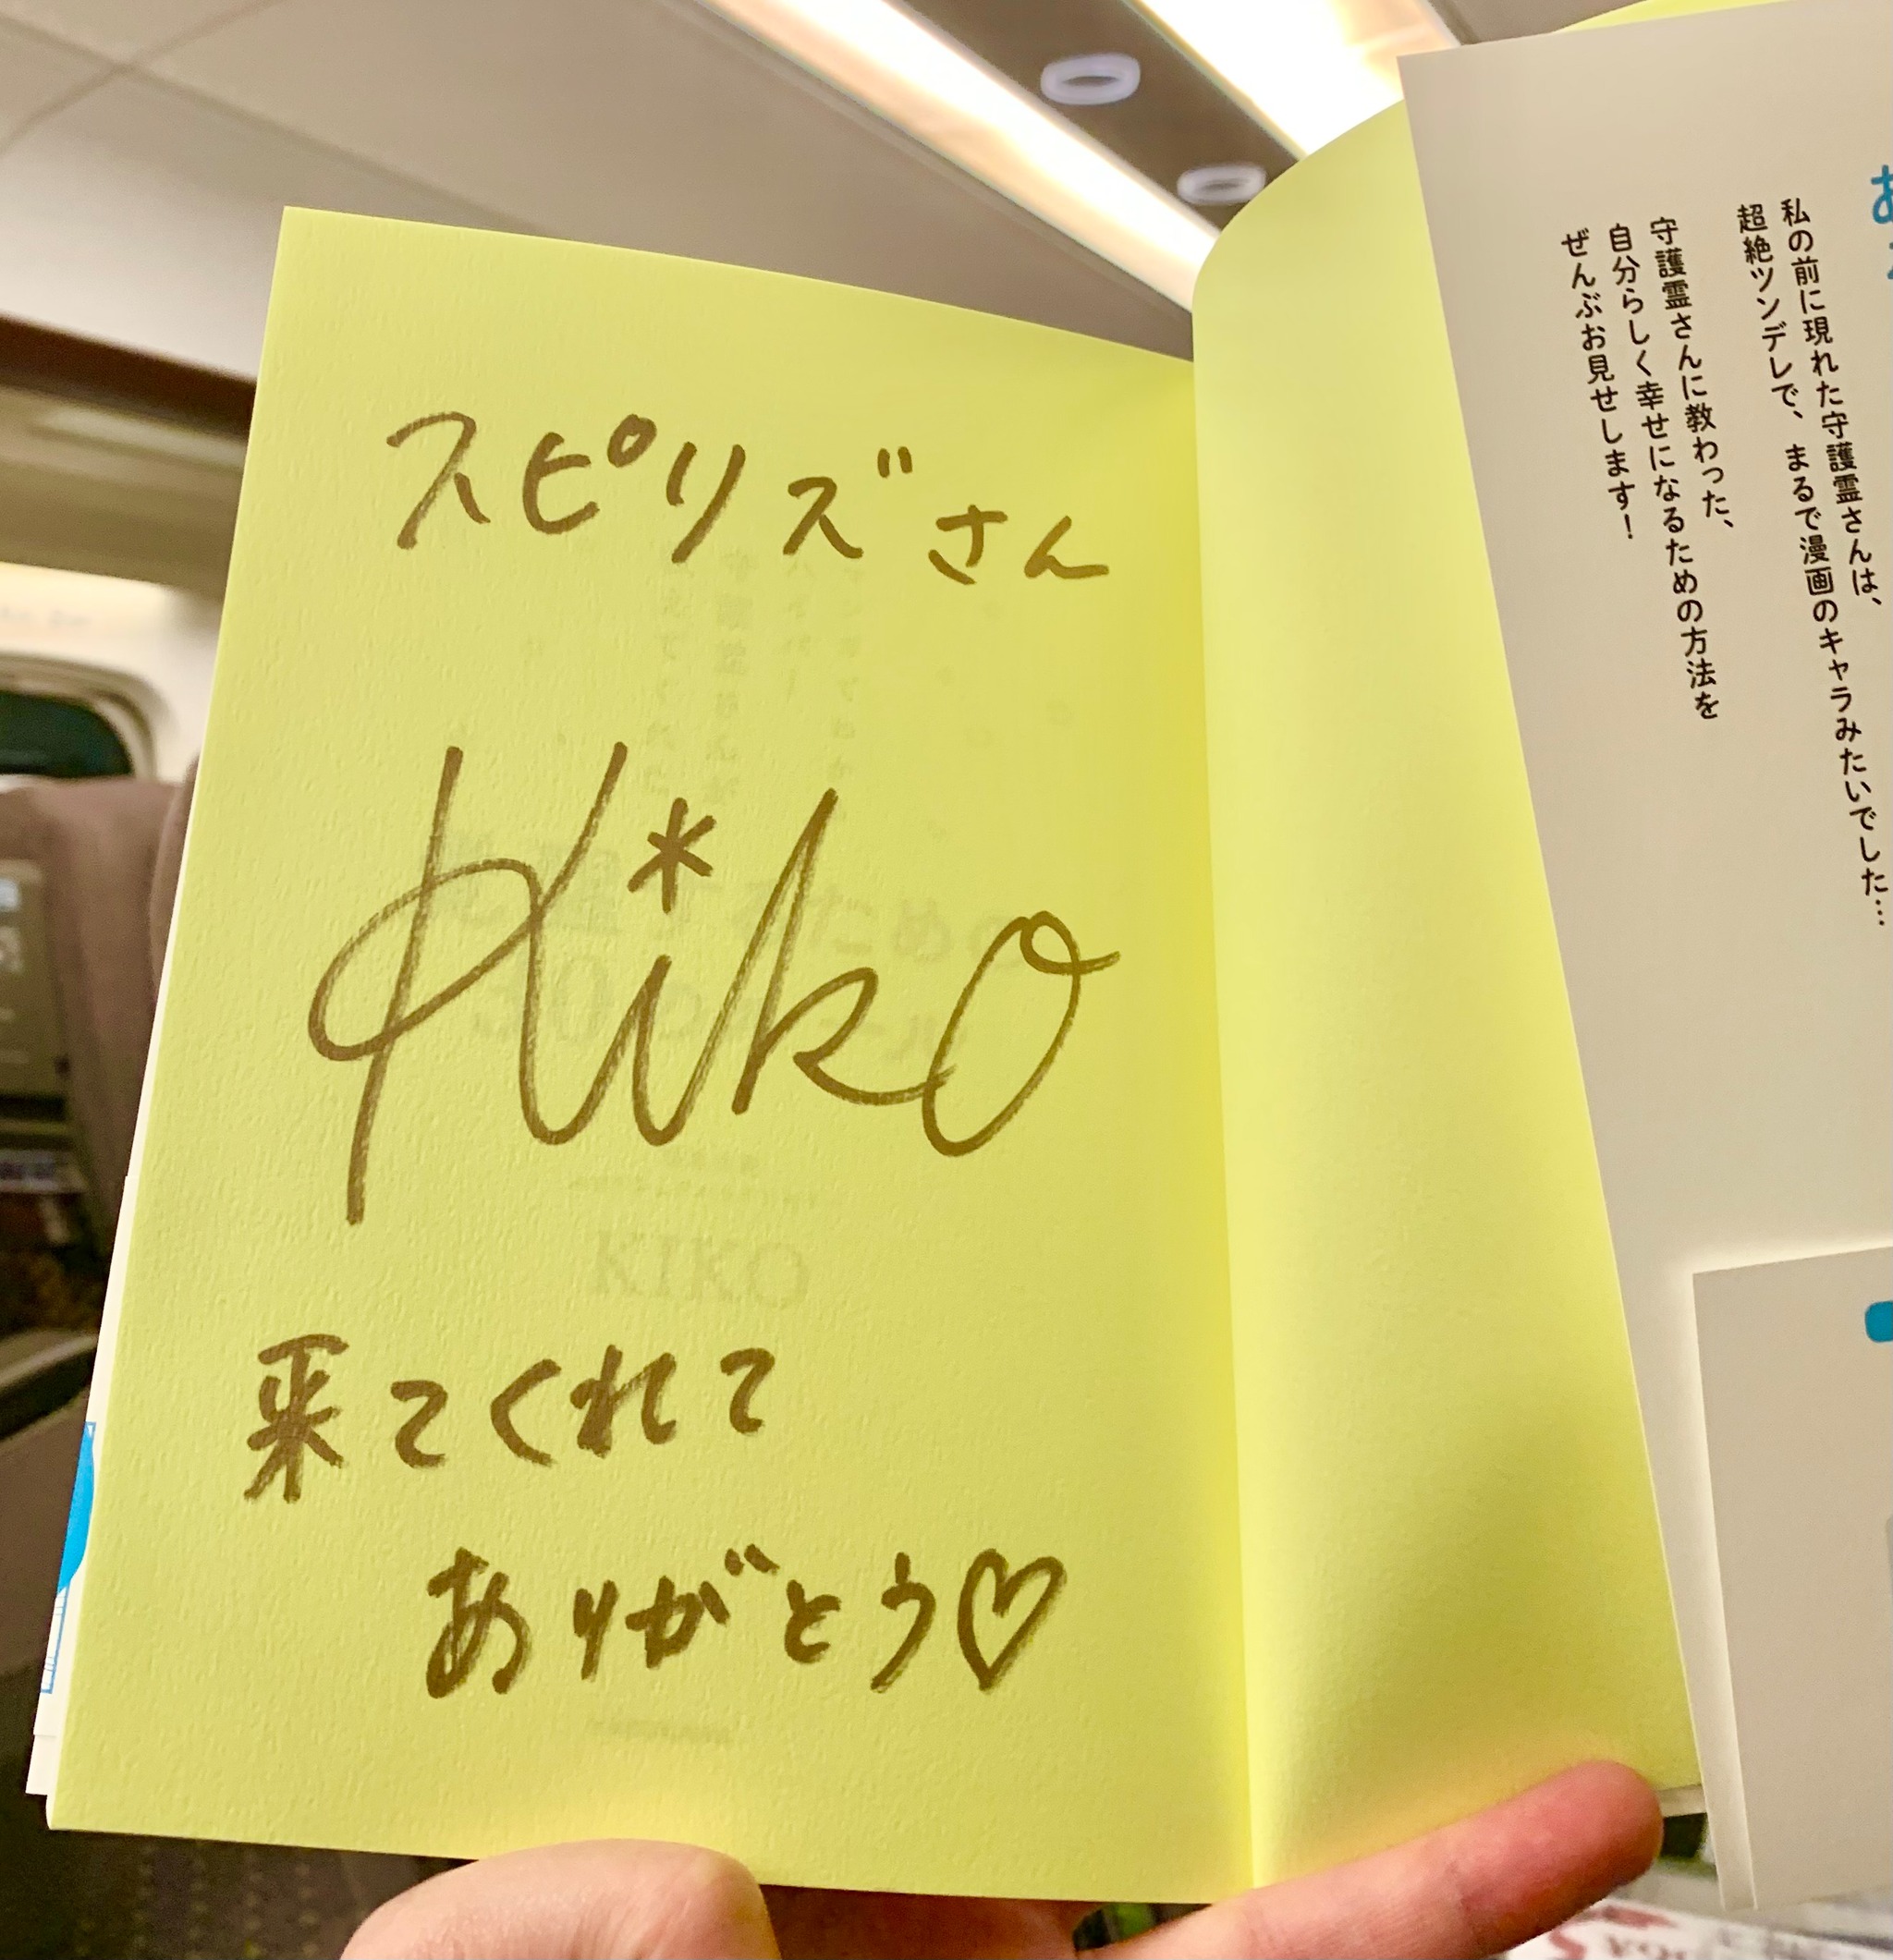 スピリズさん
Kiko
来てくれて
ありがとう♡
KIKO
私の前に現れた守護霊さんは、
超絶ツンデレで、まるで漫画のキャラみたいでした…
守護霊さんに教わった、
自分らしく幸せになるための方法を
ぜんぶお見せします!